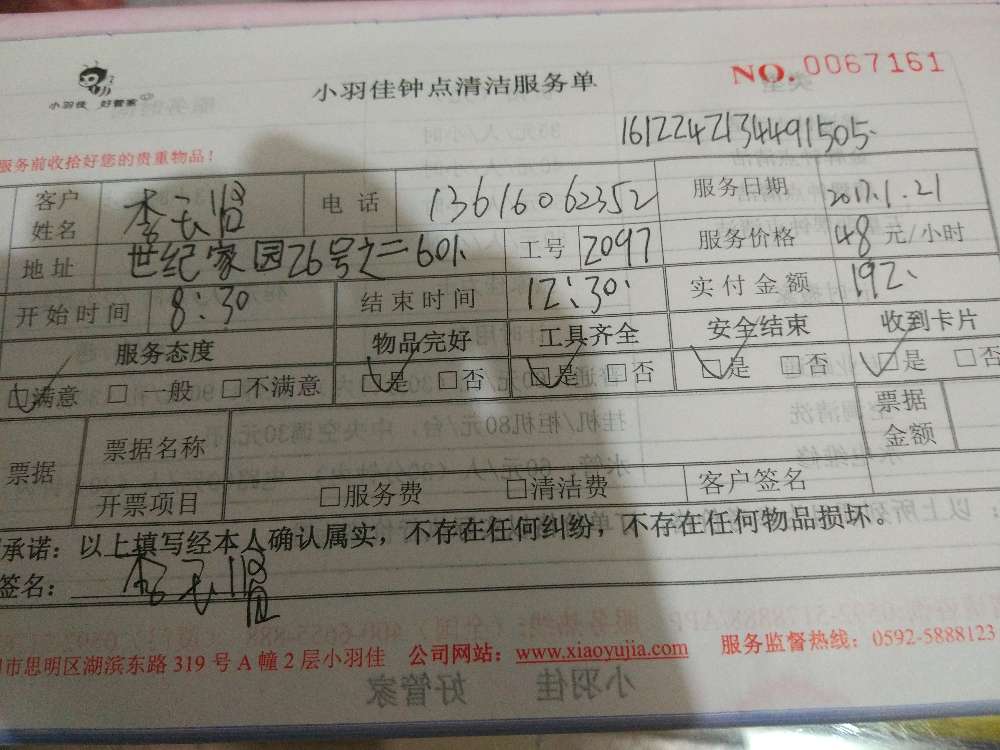 小羽佳 好管家
小羽佳钟点清洁服务单
NO.0067161
1612242134491505
服务前收拾好您的贵重物品！
客户姓名 李 电话 13616062352 服务日期 2017.1.21
地址 世纪家园26号之二601 工号 2097 服务价格 48元/小时
开始时间 8:30 结束时间 12:30 实付金额 192
服务态度 物品完好 工具齐全 安全结束 收到卡片
☑满意 □一般 □不满意 ☑是 □否 ☑是 □否 ☑是 □否 ☑是 □否
票据 票据名称 票据金额
开票项目 □服务费 □清洁费 客户签名
承诺：以上填写经本人确认属实，不存在任何纠纷，不存在任何物品损坏。
签名： 李
市思明区湖滨东路 319 号 A 幢 2 层小羽佳 公司网站：www.xiaoyujia.com 服务监督热线：0592-5888123